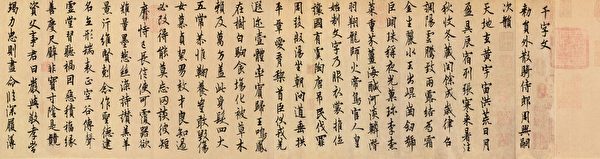 千字文
勅員外散騎侍郎周興嗣
次韻
天地玄黃宇宙洪荒日月
盈昃辰宿列張寒來暑往
秋收冬藏閏餘成歲律呂
調陽雲騰致雨露結為霜
金生麗水玉出崑岡劍號
巨闕珠稱夜光菓珎李柰
菜重芥薑海醎河淡鱗潛
羽翔龍師火帝鳥官人皇
始制文字乃服衣裳推位
讓國有虞陶唐弔民伐罪
周發殷湯坐朝問道垂拱
平章愛育黎首臣伏戎羌
遐迩壹體率賓歸王鳴鳳
在樹白駒食場化被草木
賴及萬方蓋此身髮四大
五常恭惟鞠養豈敢毀傷
女慕貞潔男效才良知過
必改得能莫忘罔談彼短
靡恃己長信使可覆器欲
難量墨悲絲染詩讚羔羊
景行維賢剋念作聖德建
名立形端表正空谷傳聲
虛堂習聽禍因惡積福緣
善慶尺璧非寶寸陰是競
資父事君曰嚴與敬孝當
竭力忠則盡命臨深履薄